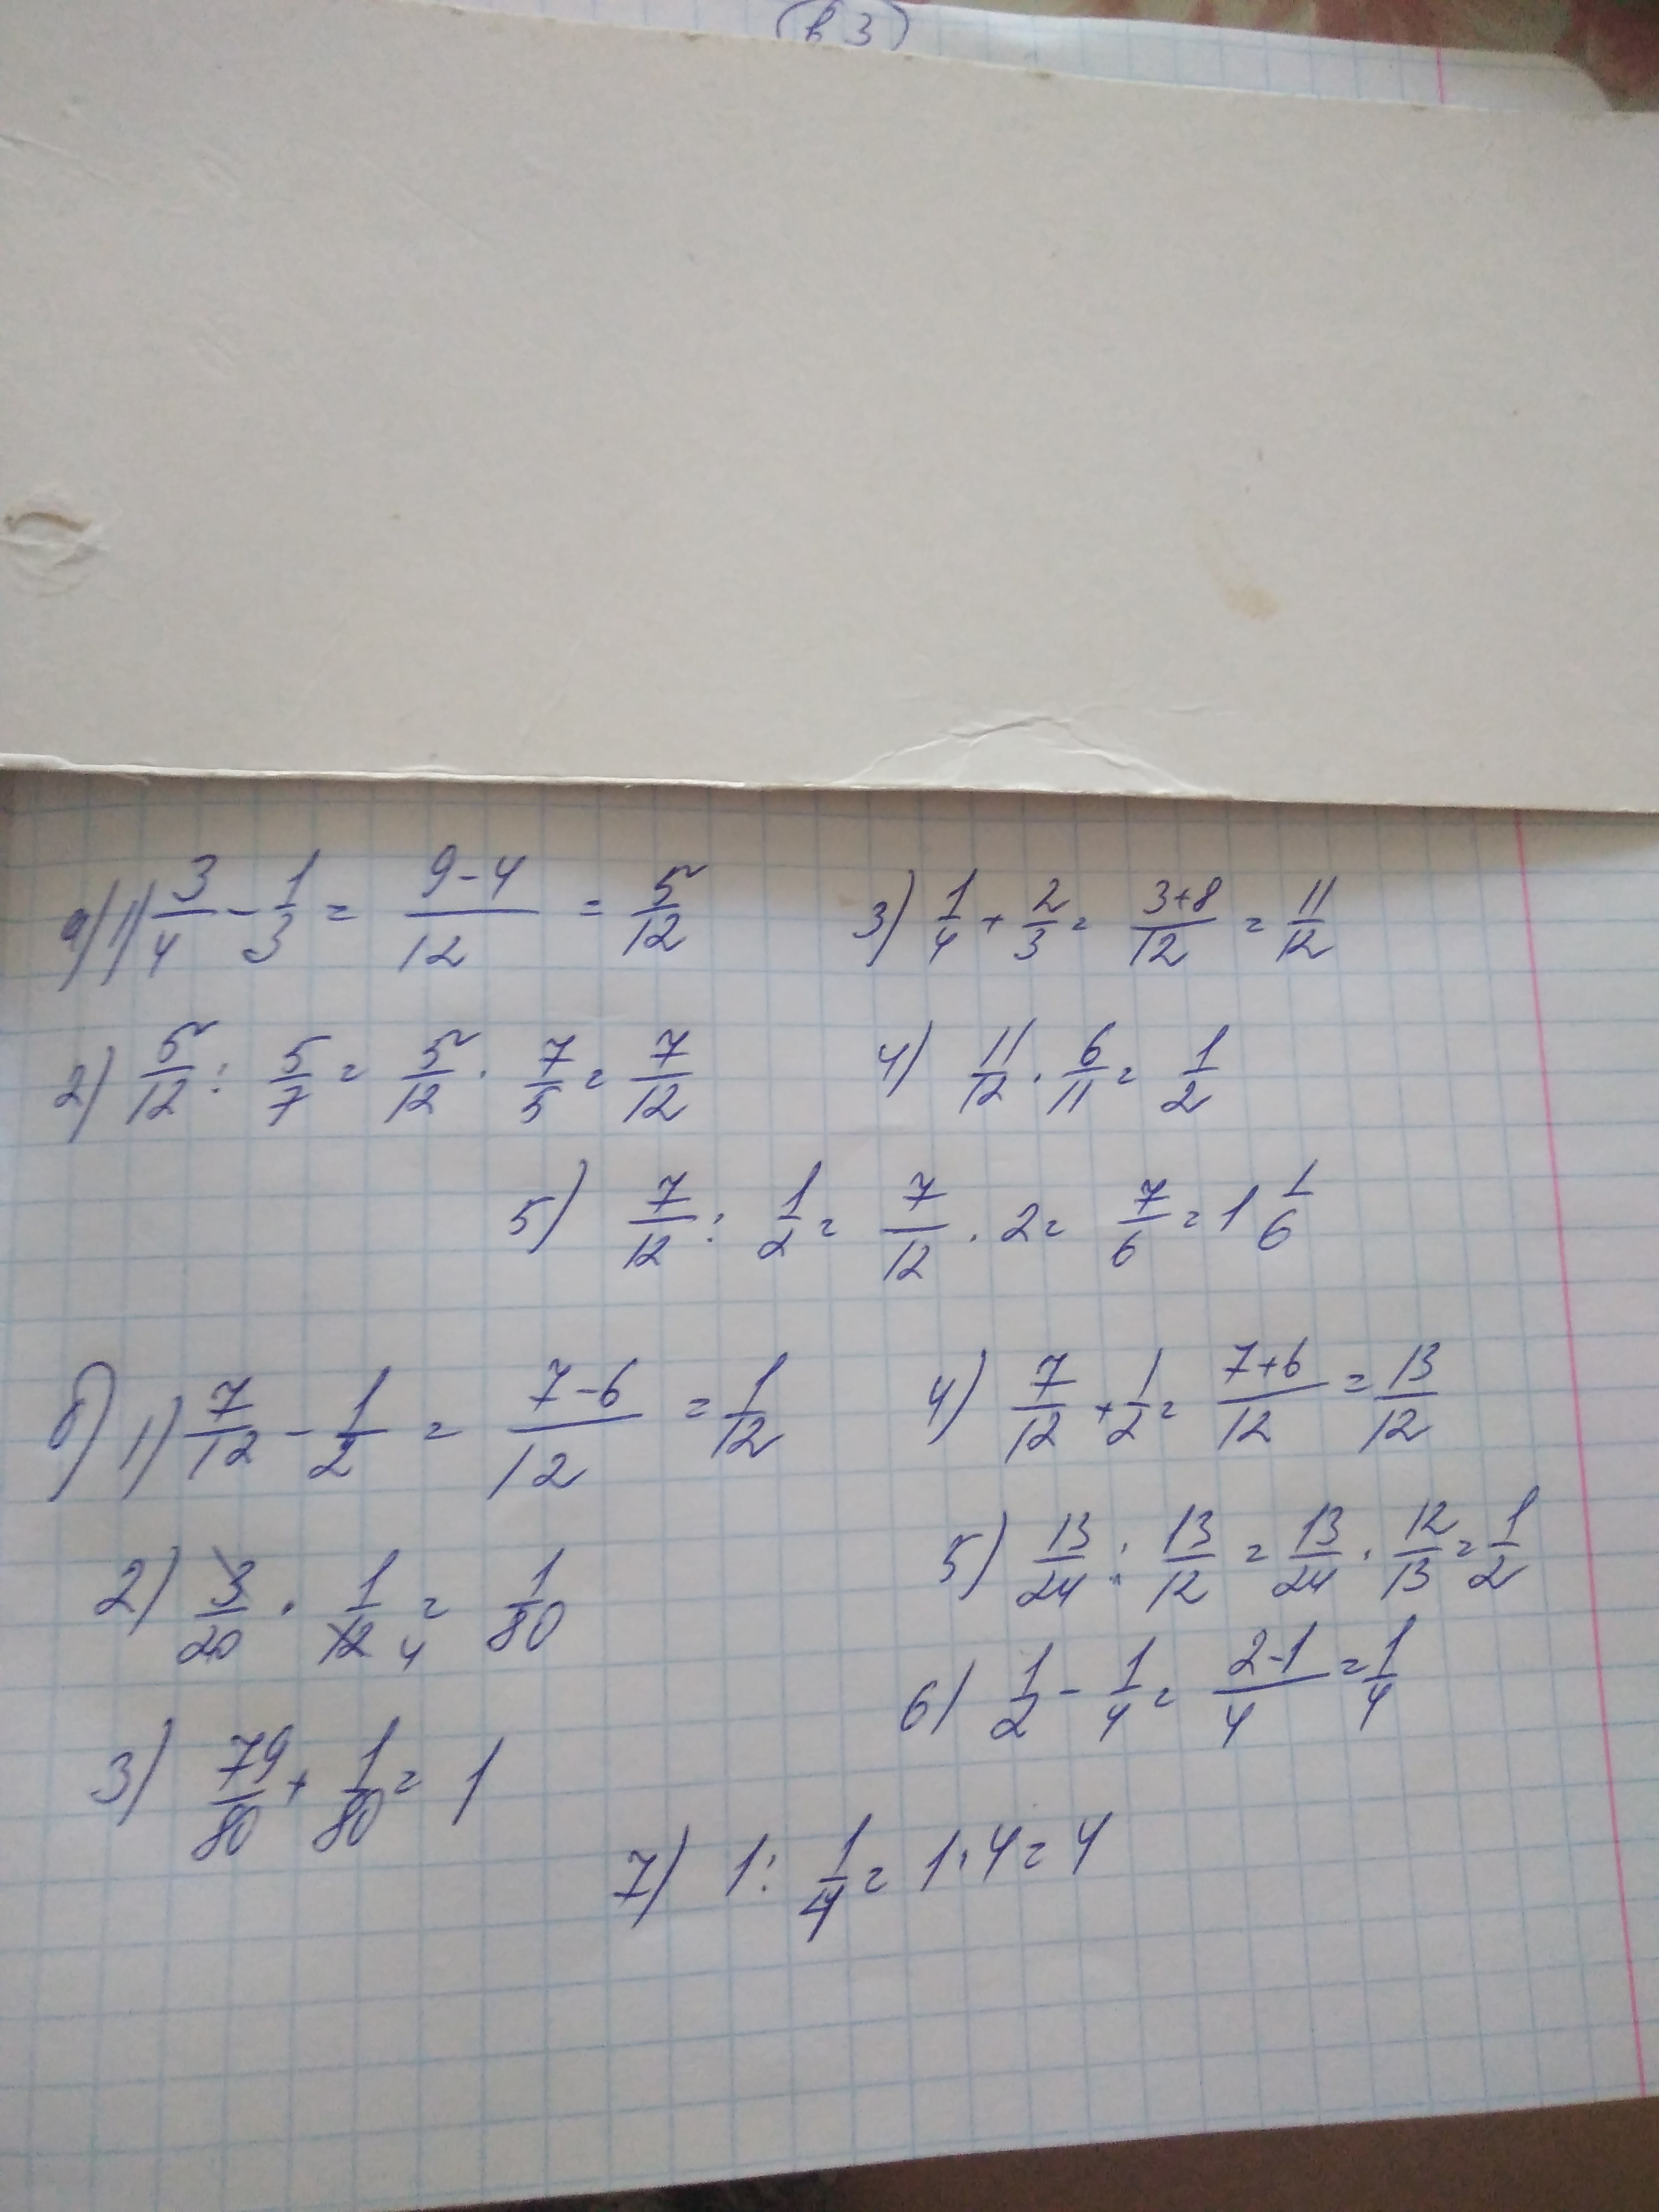 в 3
а) 1) 3/4 - 1/3 = (9-4)/12 = 5/12
3) 1/4 + 2/3 = (3+8)/12 = 11/12
2) 5/12 : 5/7 = 5/12 · 7/5 = 7/12
4) 11/12 · 6/11 = 1/2
5) 7/12 : 1/2 = 7/12 · 2 = 7/6 = 1 1/6
б) 1) 7/12 - 1/2 = (7-6)/12 = 1/12
4) 7/12 + 1/2 = (7+6)/12 = 13/12
2) 3/20 · 1/12 4 = 1/80
5) 13/24 : 13/12 = 13/24 · 12/13 = 1/2
6) 1/2 - 1/4 = (2-1)/4 = 1/4
3) 79/80 + 1/80 = 1
7) 1 : 1/4 = 1 · 4 = 4